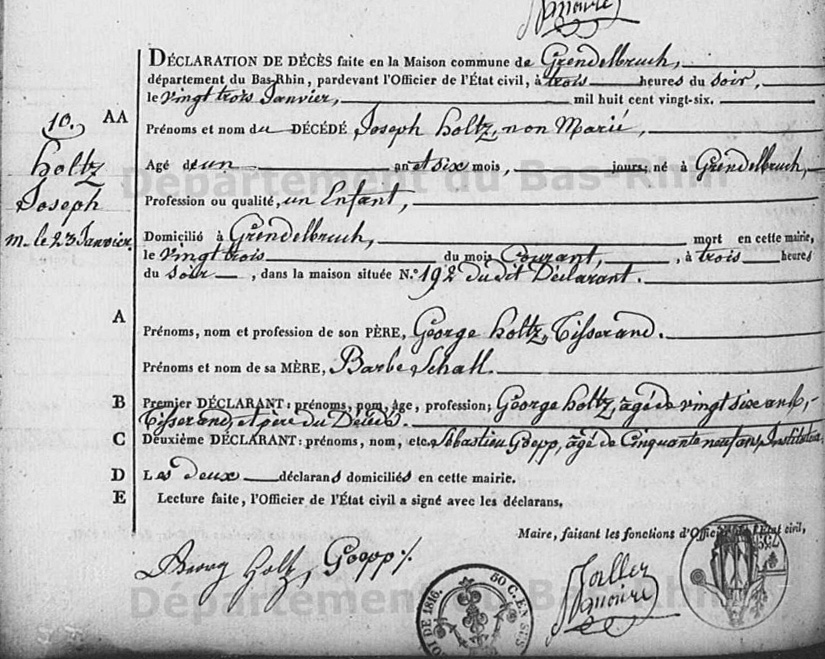 DÉCLARATION DE DÉCÈS faite en la Maison commune de Grendelbruch,
département du Bas-Rhin, pardevant l'Officier de l'État civil, à trois heures du soir,
le vingt trois Janvier, mil huit cent vingt-six.
10.
holtz
Joseph
m. le 23 Janvier.
AA
Prénoms et nom du DÉCÉDÉ Joseph holtz, non Marié,
Agé de un an et six mois, jours; né à Grendelbruch,
Profession ou qualité, un Enfant,
Domicilié à Grendelbruch, mort en cette mairie,
le vingt trois du mois Courant, , à trois heures
du soir , dans la maison située N.º 192 dudit Déclarant.
A
Prénoms, nom et profession de son PÈRE, George holtz, Tisserand.
Prénoms et nom de sa MÈRE, Barbe Schall.
B Premier DÉCLARANT: prénoms, nom, âge, profession; George holtz, âgé de vingt six ans,
Tisserand, et père du Décédé.
C Deuxième DÉCLARANT: prénoms, nom, etc. Sébastien Goepp, âgé de Cinquante neuf ans, Instituteur
D Les deux déclarans domiciliés en cette mairie.
E Lecture faite, l'Officier de l'État civil a signé avec les déclarans,
Maire, faisant les fonctions d'Officier de l'État civil,
Georg Holtz, Goepp
LOI DE 1816.
50 C. EN SUS
Département du Bas-Rhin
Département du Bas-Rhin